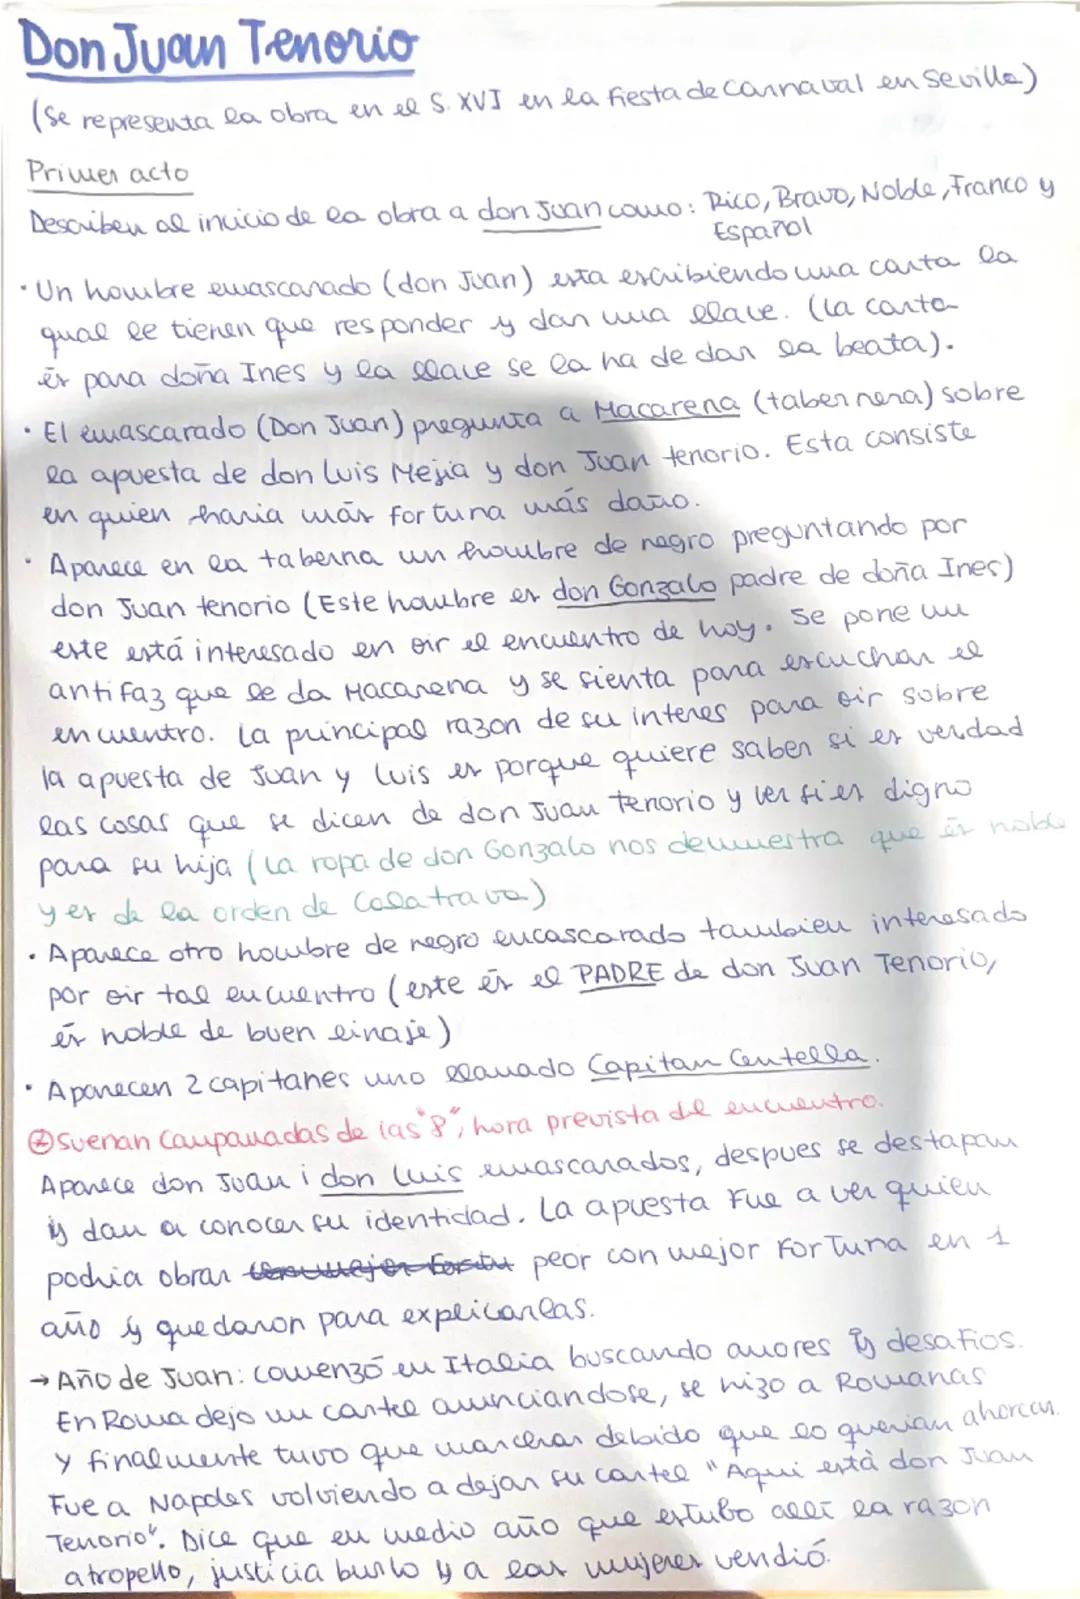 Don Juan Tenorio
(Se representa la obra en el S. XVI en la fiesta de carnaval en Sevilla)
Primer acto
Describen al inicio de la obra a don Juan como: Rico, Bravo, Noble, Franco y
Español
· Un hombre emascarado (don Juan) esta escribiendo una carta la
qual le tienen que responder y dan una llave. (La carta
és para doña Ines y la llave se la ha de dar la beata).
· El emascarado (Don Juan) pregunta a Macarena (tabernera) sobre
la apuesta de don Luis Mejia y don Juan tenorio. Esta consiste
en quien haria más fortuna más daño.
· Aparece en la taberna un hombre de negro preguntando por
don Juan tenorio (Este hombre es don Gonzalo padre de doña Ines)
este está interesado en oir el encuentro de hoy. Se pone un
antifaz que le da Macarena y se sienta para escuchar el
encuentro. La principal razon de su interes para oir sobre
la apuesta de Juan y Luis es porque quiere saber si es verdad
las cosas que se dicen de don Juan tenorio y ver si es digno
para su hija (La ropa de don Gonzalo nos demuestra que és noble
y es de la orden de Calatrava)
· Aparece otro hombre de negro encascarado tambien interesado
por oir tal encuentro (este és el PADRE de don Juan Tenorio,
és noble de buen linaje)
· Aparecen 2 capitanes uno llamado Capitan Centella.
Suenan campanadas de las "8", hora prevista del encuentro.
Aparece don Juan i don Luis emascarados, despues se destapan
y dan a conocer su identidad. La apuesta Fue a ver quien
podria obrar peor con mejor Fortuna en 1
año y quedaron para explicarlas.
→ Año de Juan: comenzó en Italia buscando amores y desafios.
En Roma dejo un cartel anunciandose, se hizo a Romanas
y finalmente tuvo que marchar debido que lo querian ahorcar.
Fue a Napoles volviendo a dejar su cartel "Aqui està don Juan
Tenorio". Dice que en medio año que estubo allí la razon
atropello, justicia burlo y a las mujeres vendió.